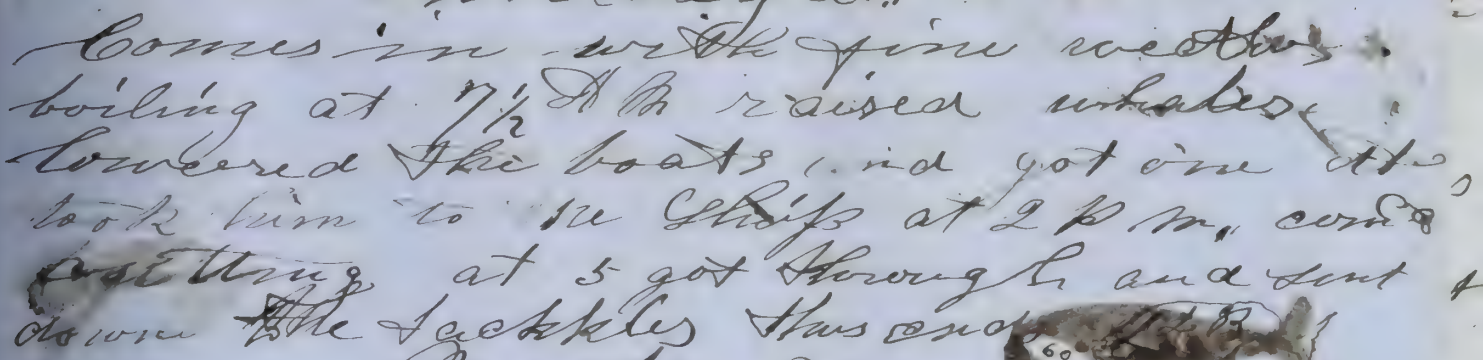 Comes in with fine weather
boiling at 7 1/2 A M raised whales
lowered the boats and got one
took him to the Ship at 2 P M, comd
cutting at 5 got through and sent
down the tackkles thus ends
60